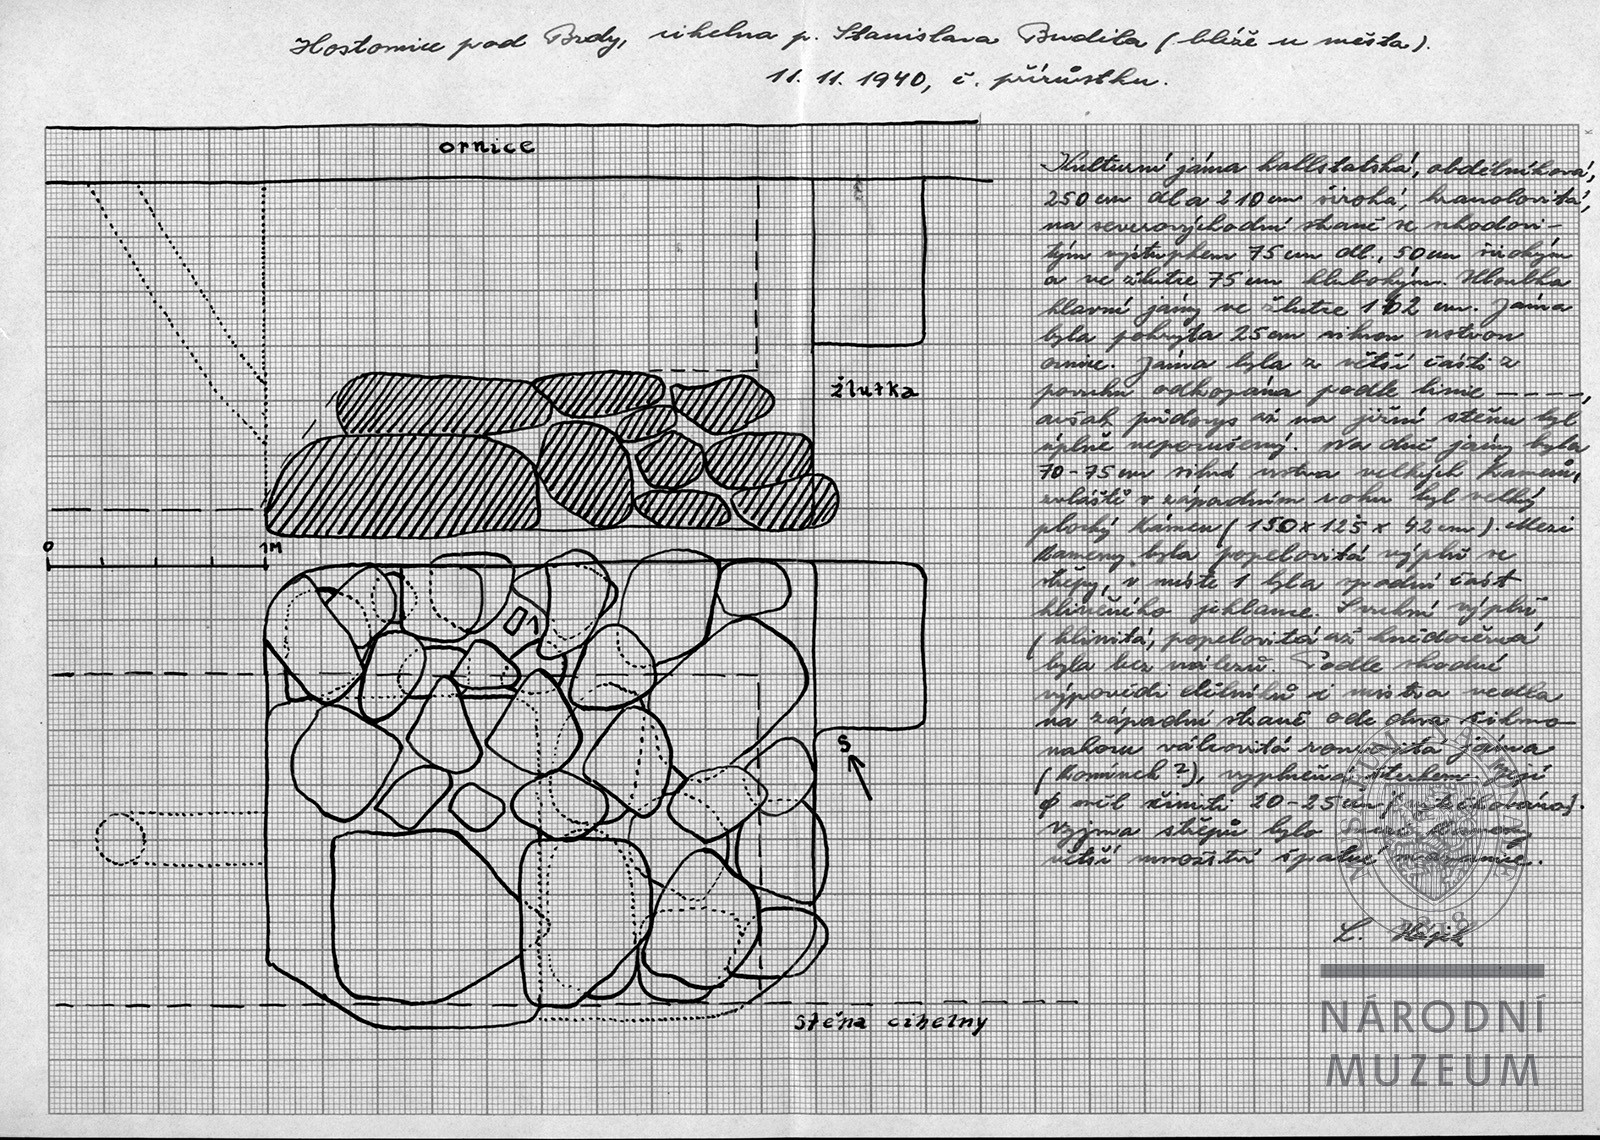 Hostomice pod Brdy, cihelna p. Stanislava Budila (blíže u města).
11. 11. 1940, č. přírůstku.
ornice
Kulturní jáma hallstatská, obdélníková,
250 cm dl a 210 cm široká, hranolovitá,
na severovýchodní straně se schodovi-
tým výstupkem 75 cm dl., 50 cm širokým
a ve žlutce 75 cm hlubokým. Hloubka
hlavní jámy ve žlutce 162 cm. Jáma
byla pokryta 25 cm silnou vrstvou
ornice. Jáma byla z větší části z
povrchu odkopána podle linie - - - -,
avšak půdorys až na jižní stěnu byl
úplně neporušený. Na dně jámy byla
70-75 cm silná vrstva velkých kamenů,
zvláště v západním rohu byl velký
plochý kámen (150 x 125 x 42 cm). Mezi
kameny byla popelovitá výplň se
střepy, v místě 1 byla spodní část
hliněného jehlance. Svrchní výplň
(hlinitá, popelovitá až hnědočerná)
byla bez nálezů. Podle shodné
výpovědi dělníků i mistra vedla
na západní straně ode dna šikmo
nahoru válcovitá rourovitá jáma
(komínek?), vyplněná štěrkem. Její
φ měl činiti 20-25 cm
Vyjma střepů bylo mezi kameny
větší množství špatné mazanice.
L. Hájek
žlutka
0
1M
1
S
stěna cihelny
NÁRODNÍ
MUZEUM